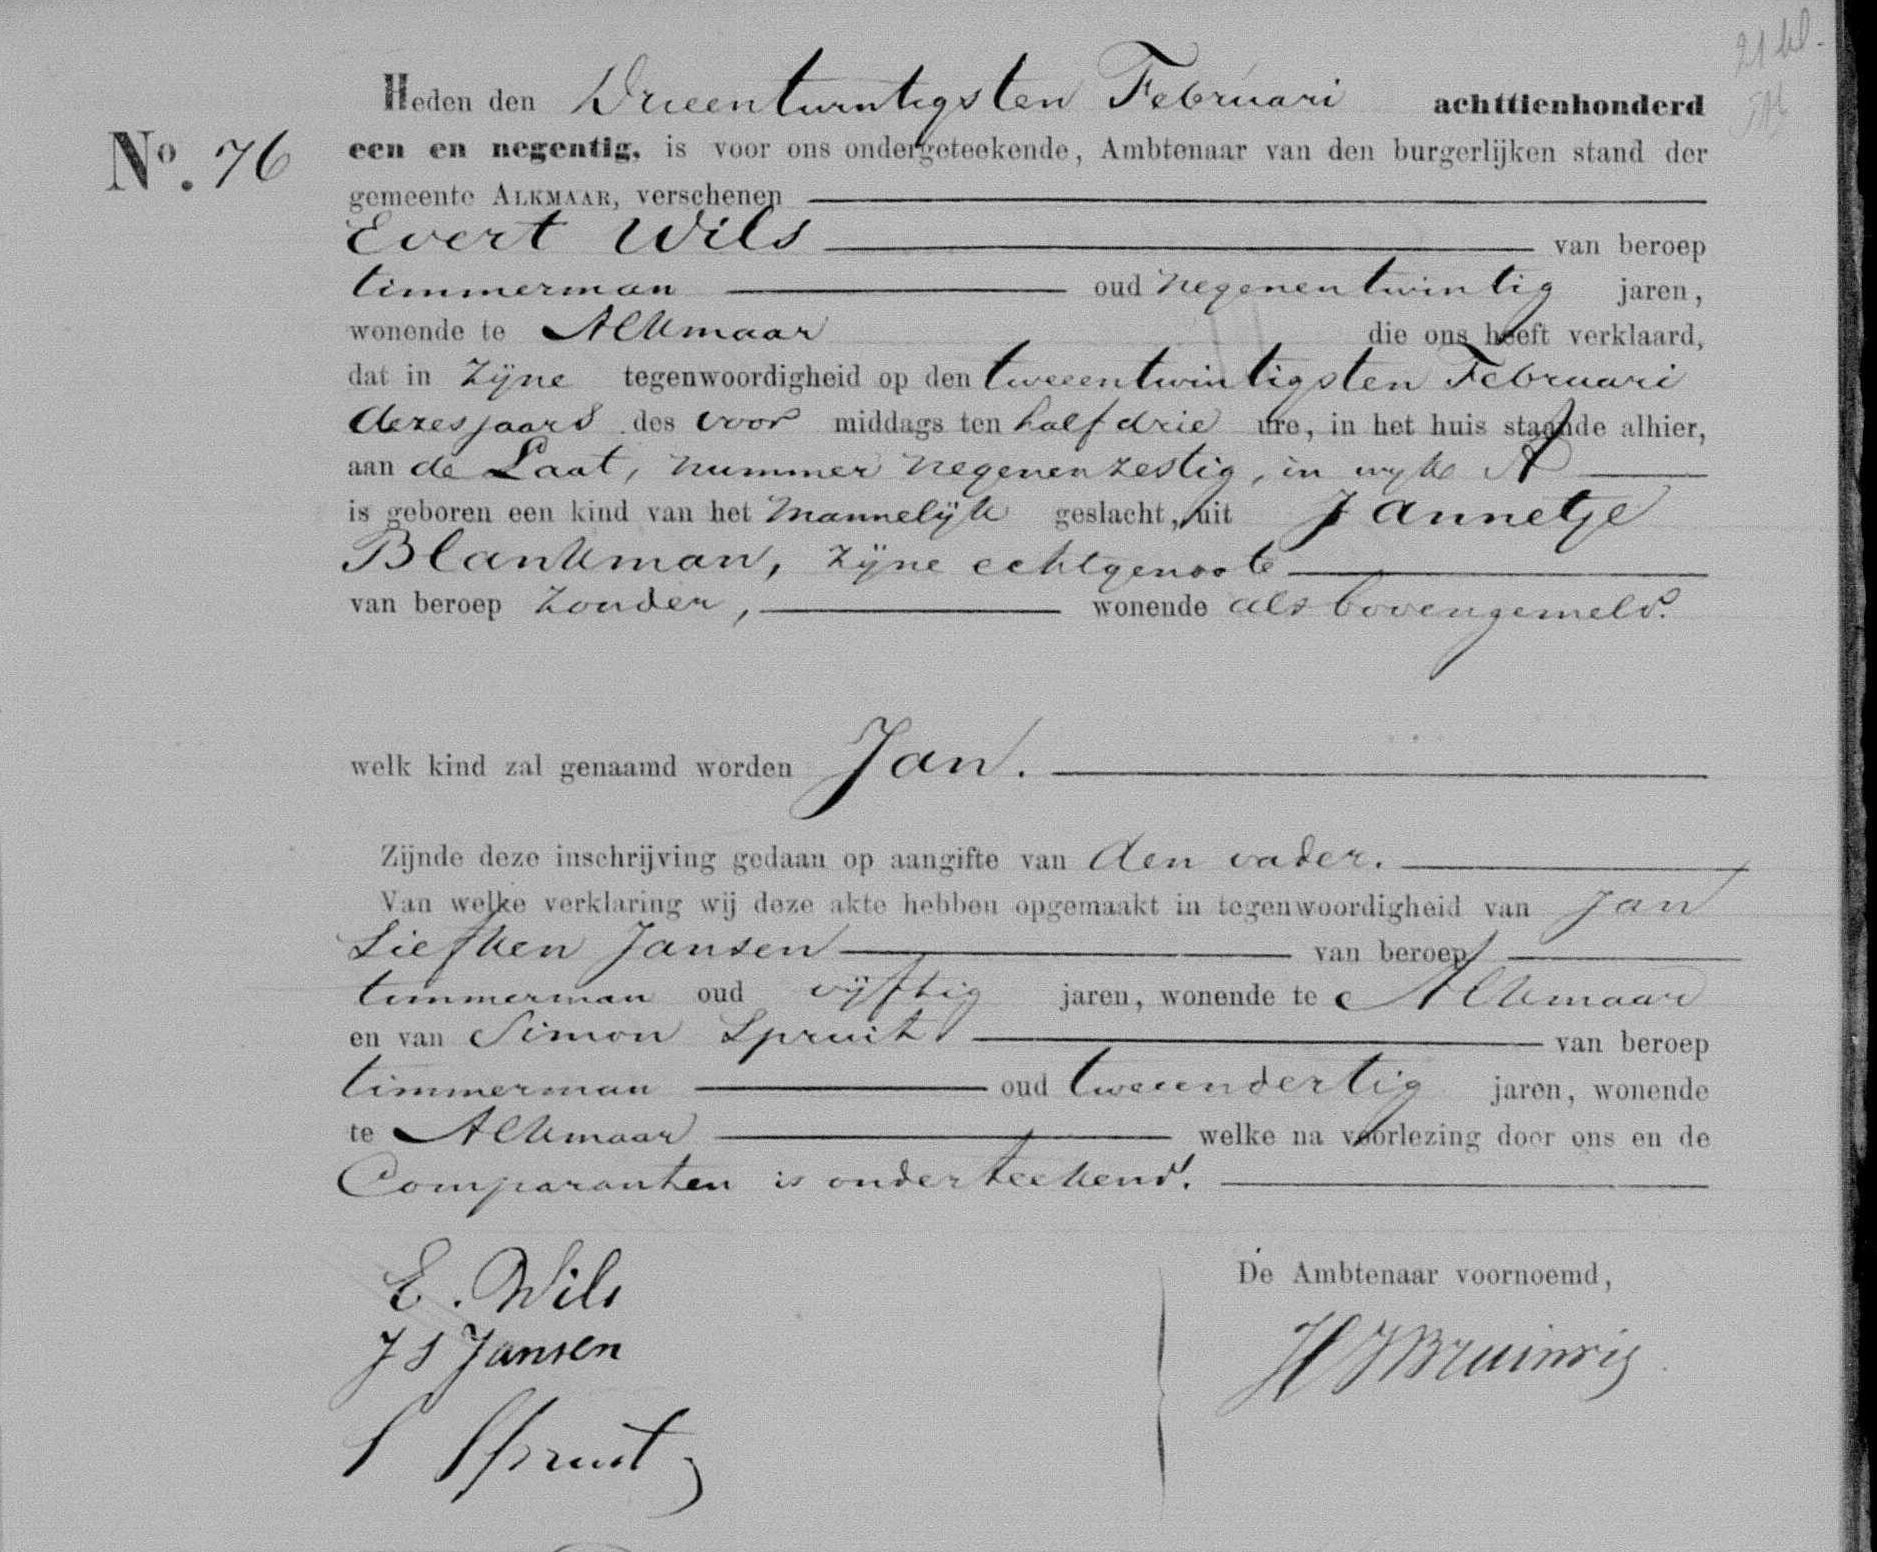 Heden den Drieentwintigsten Februari achttienhonderd
No. 76 een en negentig, is voor ons ondergeteekende, Ambtenaar van den burgerlijken stand der
gemeente ALKMAAR, verschenen
Evert Wils van beroep
timmerman oud negenentwintig jaren,
wonende te Alkmaar die ons heeft verklaard,
dat in zijne tegenwoordigheid op den tweeentwintigsten Februari
dezes jaars des voor middags ten half drie ure, in het huis staande alhier,
aan de Laat, nummer negenenzestig, in wijk A
is geboren een kind van het mannelijk geslacht, uit Jannetje
Blankman, zijne echtgenoote
van beroep zonder, wonende als bovengemeld.
welk kind zal genaamd worden Jan.
Zijnde deze inschrijving gedaan op aangifte van den vader.
Van welke verklaring wij deze akte hebben opgemaakt in tegenwoordigheid van Jan
Liefken Jansen van beroep
timmerman oud vijftig jaren, wonende te Alkmaar
en van Simon Spruit van beroep
timmerman oud tweeendertig jaren, wonende
te Alkmaar welke na voorlezing door ons en de
Comparanten is onderteekend.
E. Wils
De Ambtenaar voornoemd,
J S Jansen
S Spruit